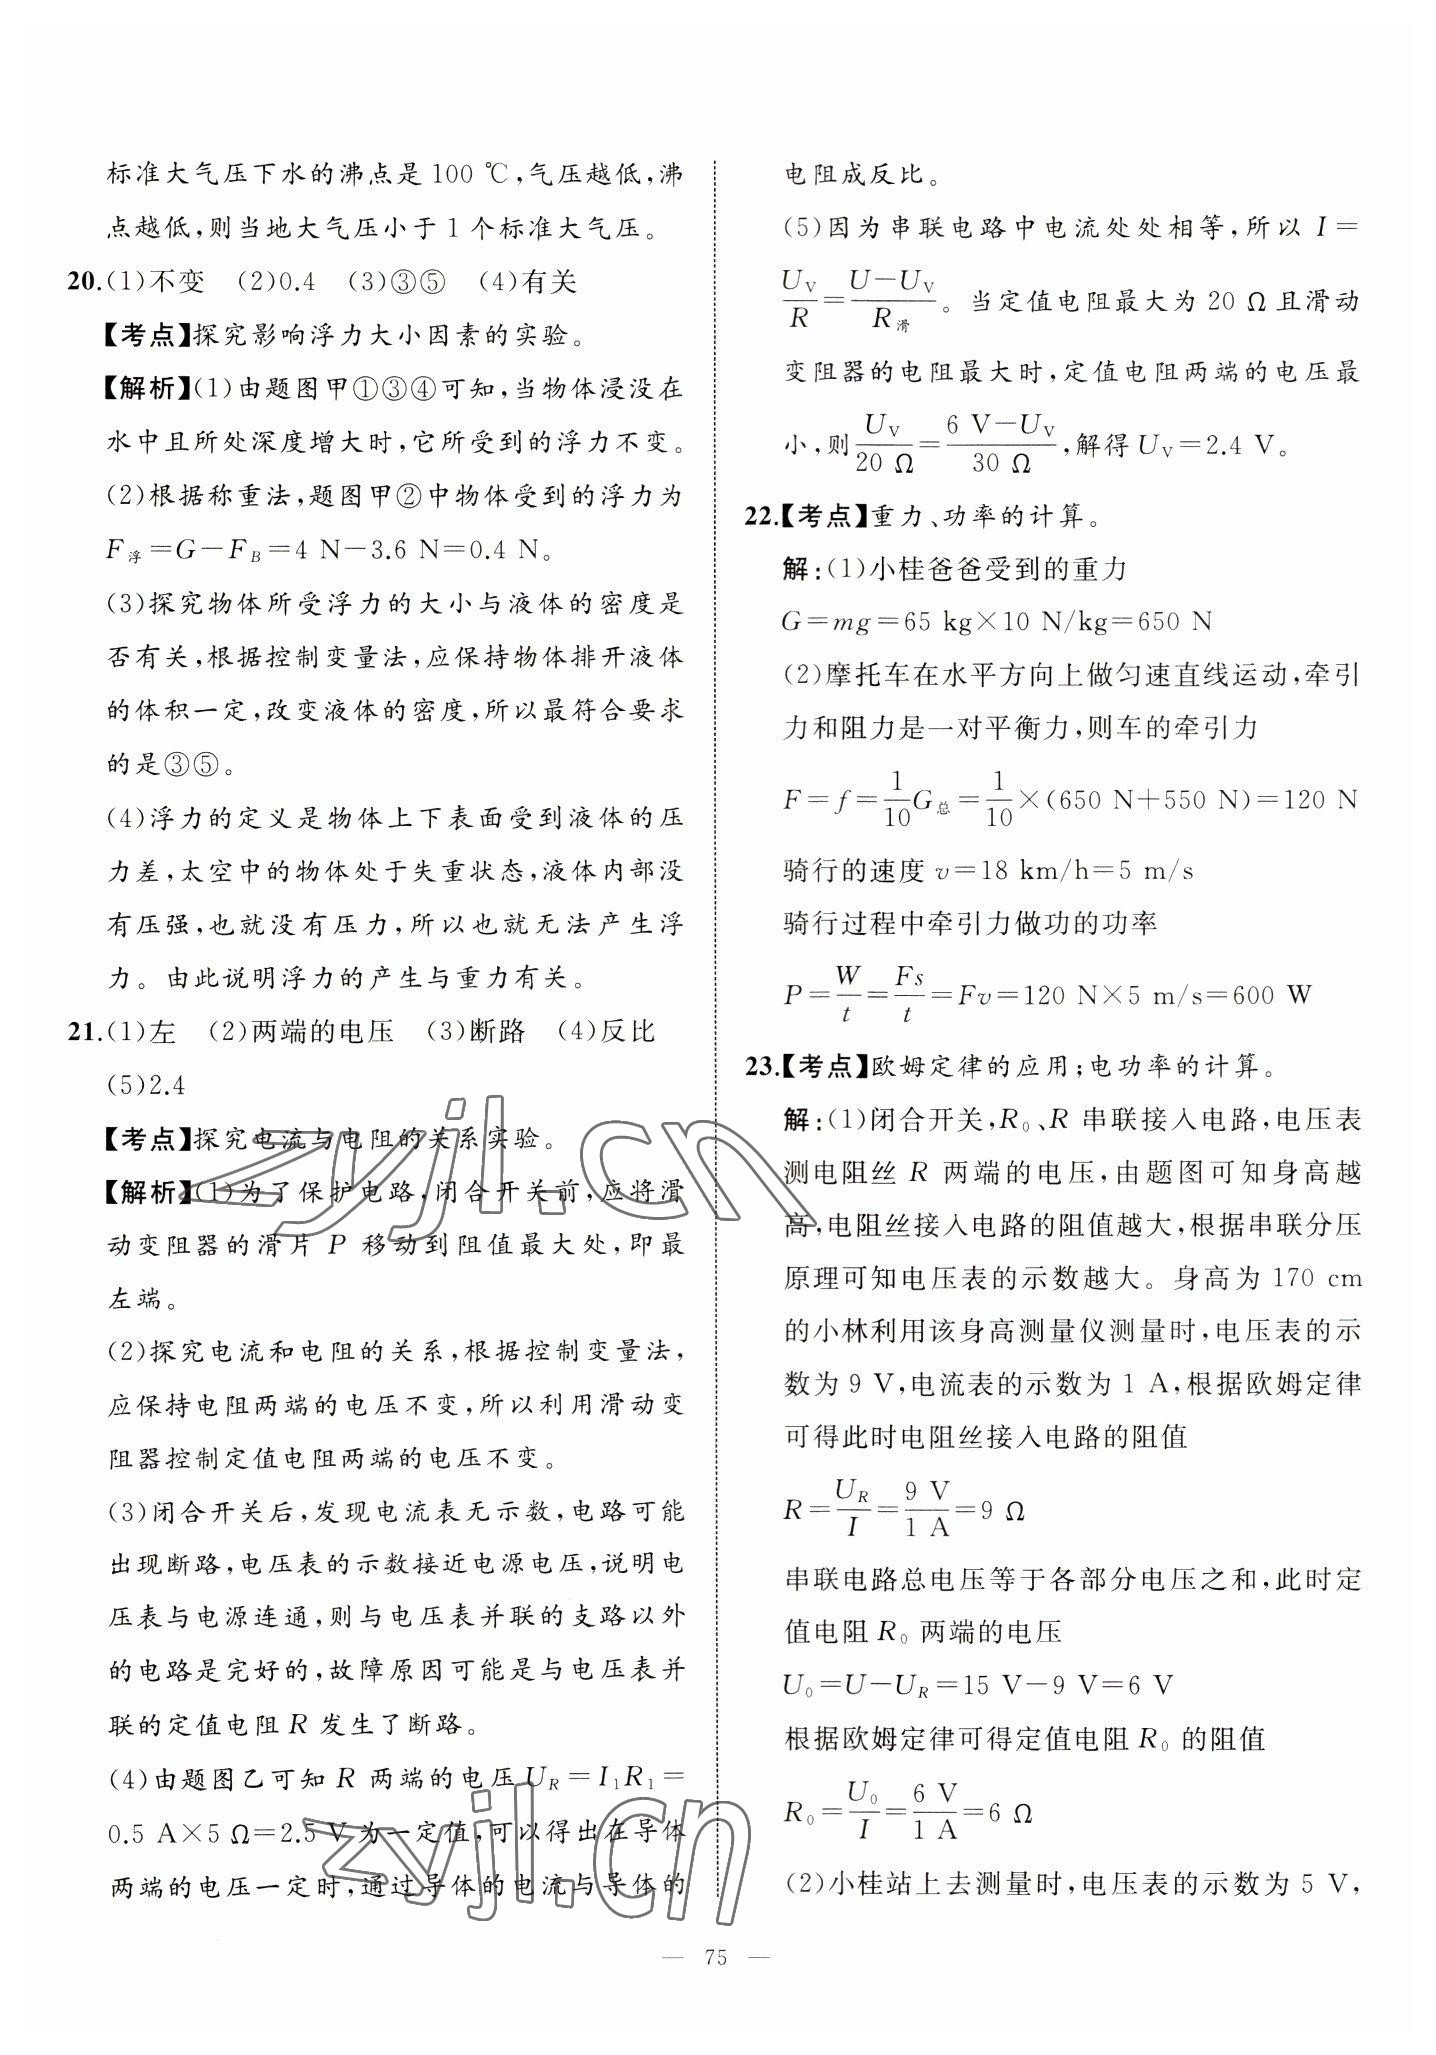 标准大气压下水的沸点是 100 ℃,气压越低,沸
点越低,则当地大气压小于 1 个标准大气压。
20.(1)不变 (2)0.4 (3)③⑤ (4)有关
【考点】探究影响浮力大小因素的实验。
【解析】(1)由题图甲①③④可知,当物体浸没在
水中且所处深度增大时,它所受到的浮力不变。
(2)根据称重法,题图甲②中物体受到的浮力为
F浮=G-F_B=4 N-3.6 N=0.4 N。
(3)探究物体所受浮力的大小与液体的密度是
否有关,根据控制变量法,应保持物体排开液体
的体积一定,改变液体的密度,所以最符合要求
的是③⑤。
(4)浮力的定义是物体上下表面受到液体的压
力差,太空中的物体处于失重状态,液体内部没
有压强,也就没有压力,所以也就无法产生浮
力。由此说明浮力的产生与重力有关。
21.(1)左 (2)两端的电压 (3)断路 (4)反比
(5)2.4
【考点】探究电流与电阻的关系实验。
【解析】(1)为了保护电路,闭合开关前,应将滑
动变阻器的滑片 P 移动到阻值最大处,即最
左端。
(2)探究电流和电阻的关系,根据控制变量法,
应保持电阻两端的电压不变,所以利用滑动变
阻器控制定值电阻两端的电压不变。
(3)闭合开关后,发现电流表无示数,电路可能
出现断路,电压表的示数接近电源电压,说明电
压表与电源连通,则与电压表并联的支路以外
的电路是完好的,故障原因可能是与电压表并
联的定值电阻 R 发生了断路。
(4)由题图乙可知 R 两端的电压 U_R=I₁R₁=
0.5 A×5 Ω=2.5 V 为一定值,可以得出在导体
两端的电压一定时,通过导体的电流与导体的
电阻成反比。
(5)因为串联电路中电流处处相等,所以 I=
U_V/R=(U-U_V)/R滑。当定值电阻最大为 20 Ω 且滑动
变阻器的电阻最大时,定值电阻两端的电压最
小,则 U_V/20 Ω=(6 V-U_V)/30 Ω,解得 U_V=2.4 V。
22.【考点】重力、功率的计算。
解:(1)小桂爸爸受到的重力
G=mg=65 kg×10 N/kg=650 N
(2)摩托车在水平方向上做匀速直线运动,牵引
力和阻力是一对平衡力,则车的牵引力
F=f=1/10 G总=1/10×(650 N+550 N)=120 N
骑行的速度 v=18 km/h=5 m/s
骑行过程中牵引力做功的功率
P=W/t=Fs/t=Fv=120 N×5 m/s=600 W
23.【考点】欧姆定律的应用;电功率的计算。
解:(1)闭合开关,R₀、R 串联接入电路,电压表
测电阻丝 R 两端的电压,由题图可知身高越
高,电阻丝接入电路的阻值越大,根据串联分压
原理可知电压表的示数越大。身高为 170 cm
的小林利用该身高测量仪测量时,电压表的示
数为 9 V,电流表的示数为 1 A,根据欧姆定律
可得此时电阻丝接入电路的阻值
R=U_R/I=9 V/1 A=9 Ω
串联电路总电压等于各部分电压之和,此时定
值电阻 R₀ 两端的电压
U₀=U-U_R=15 V-9 V=6 V
根据欧姆定律可得定值电阻 R₀ 的阻值
R₀=U₀/I=6 V/1 A=6 Ω
(2)小桂站上去测量时,电压表的示数为 5 V,
— 75 —
zyjl.cn
zyjl.cn